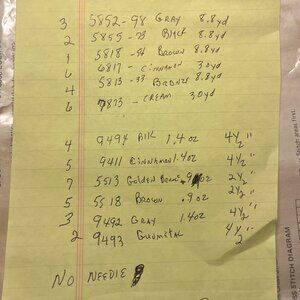 3 5852-98 GRAY 8.8yd
2 5855-73 BlACK 8.8yd
1 5818-54 BROWN 8.8yd
6 6817- CINNAMON 30yd
4 5813-33 BRONZE 8.8yd
6 7873- CREAM 30yd
4 9494 Blk 1.4oz 4 1/2"
5 9411 Cinnamon 1.4oz 4 1/2"
7 5513 Golden .9oz 2 1/2"
5 5518 BROWN .9oz 2 1/2"
3 9492 GRAY 1.4oz 4 1/2"
2 9493 GUNMETAL 4 1/2"
NO NEEDlE
STITCH DIAGRAM